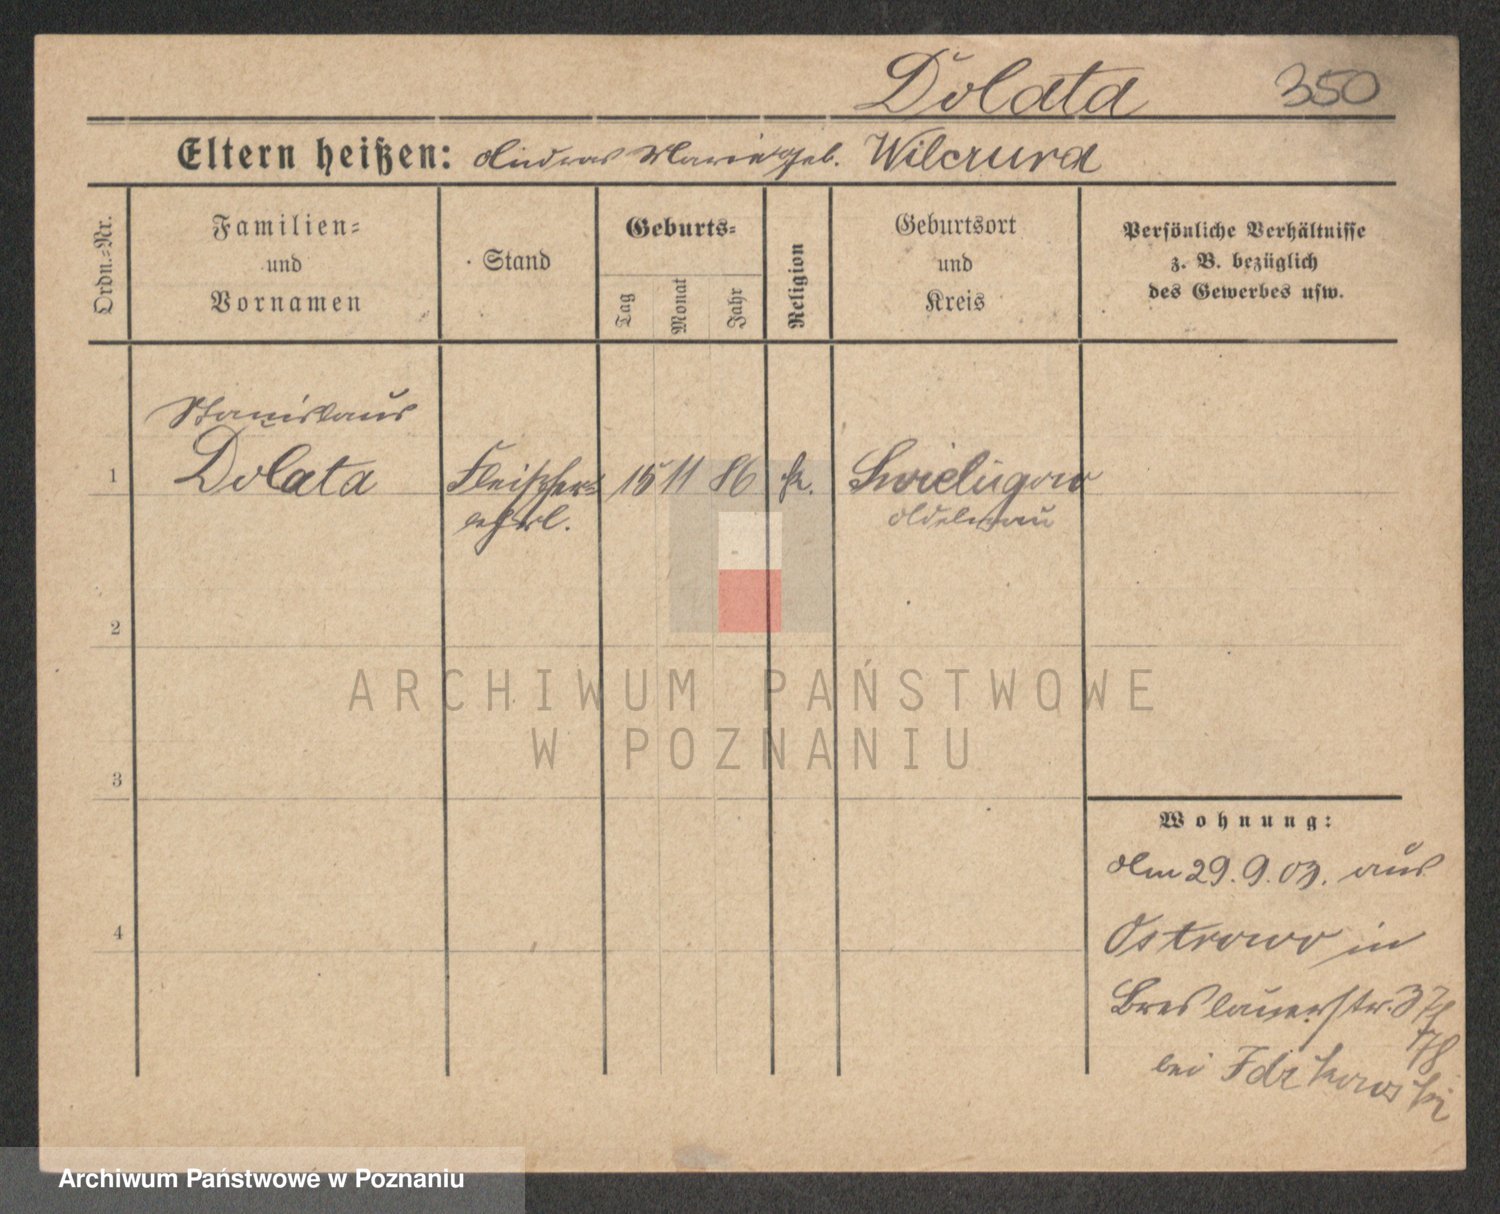 Dolata 350
Eltern heißen: Andreas Marie geb. Wilczura
Ordn.-Nr.
Familien-
und
Vornamen
Stand
Geburts-
Tag
Monat
Jahr
Religion
Geburtsort
und
Kreis
Persönliche Verhältnisse
z. B. bezüglich
des Gewerbes usw.
Stanislaus
1 Dolata Fleischer- 15 11 86 k.
lehrl. Adelnau
2
3
4
Wohnung:
Am 29. 9. 03. aus
Ostrowo in
Breslauerstr. 37/
78
bei
ARCHIWUM PAŃSTWOWE
W POZNANIU
Archiwum Państwowe w Poznaniu